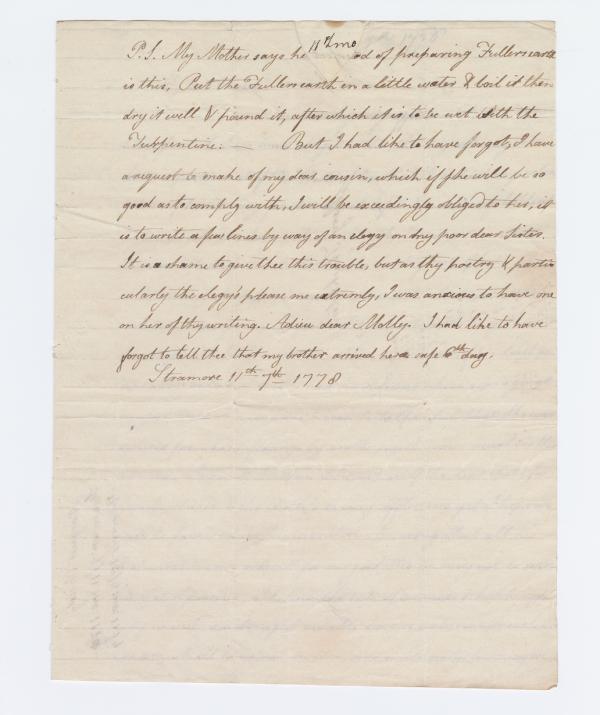 11th mo
P.S. My Mother says he od of preparing Fullers earth
is this, Put the Fullers earth in a little water & boil it then
dry it well & pound it, after which it is to be wet with the
Turpentine: — But I had like to have forgot, I have
a request to make of my dear cousin, which if she will be so
good as to comply with, I will be exceedingly obliged to her, it
is to write a few lines by way of an elegy on my poor dear Sister.
It is a shame to give thee this trouble, but as thy poetry & parti
cularly the elegy's please me extremly, I was anxious to have one
on her of thy writing. Adieu dear Molly. I had like to have
forgot to tell thee that my brother arrived here safe 6th day.
Stramore 11th 7th 1778